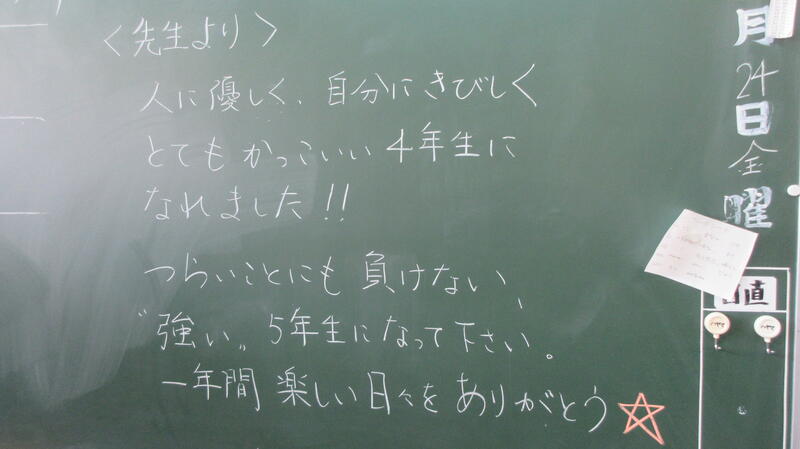 ＜先生より＞
人に優しく、自分にきびしく
とてもかっこいい4年生に
なれました!!
つらいことにも負けない、
〝強い〟5年生になって下さい。
一年間 楽しい日々をありがとう☆
月
24
日
金
曜
日直